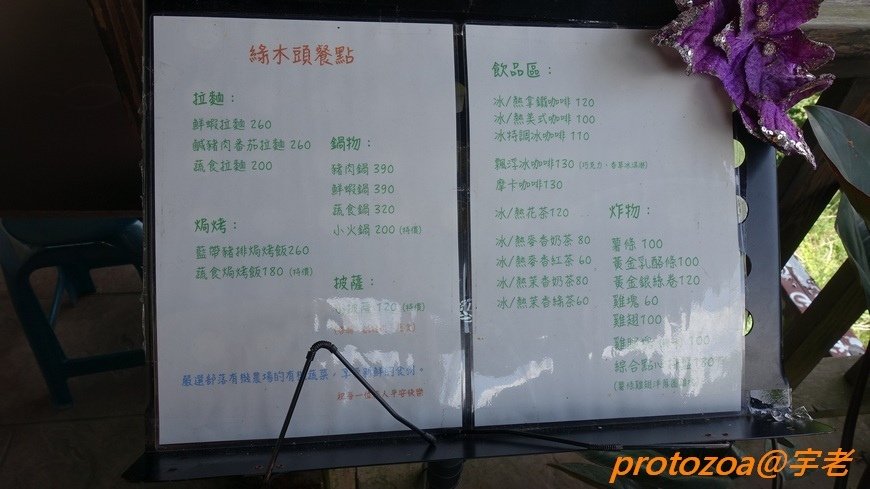 綠木頭餐點
拉麵：
鮮蝦拉麵 260
鹹豬肉番茄拉麵 260
蔬食拉麵 200
鍋物：
豬肉鍋 390
鮮蝦鍋 390
蔬食鍋 320
小火鍋 200 (特價)
焗烤：
藍帶豬排焗烤飯260
蔬食焗烤飯180 (特價)
披薩：
120 (特價)
嚴選部落有機農場的有機蔬菜，享
人平安快樂
飲品區：
冰/熱拿鐵咖啡 120
冰/熱美式咖啡 100
冰特調冰咖啡 110
飄浮冰咖啡130 (巧克力、香草冰淇淋)
摩卡咖啡130
冰/熱花茶120
冰/熱麥香奶茶 80
冰/熱麥香紅茶 60
冰/熱茉香奶茶80
冰/熱茉香綠茶60
炸物：
薯條 100
黃金乳酪條100
黃金銀絲卷120
雞塊 60
雞翅100
100
綜合點心
(薯條雞翅洋蔥圈
protozoa@宇老